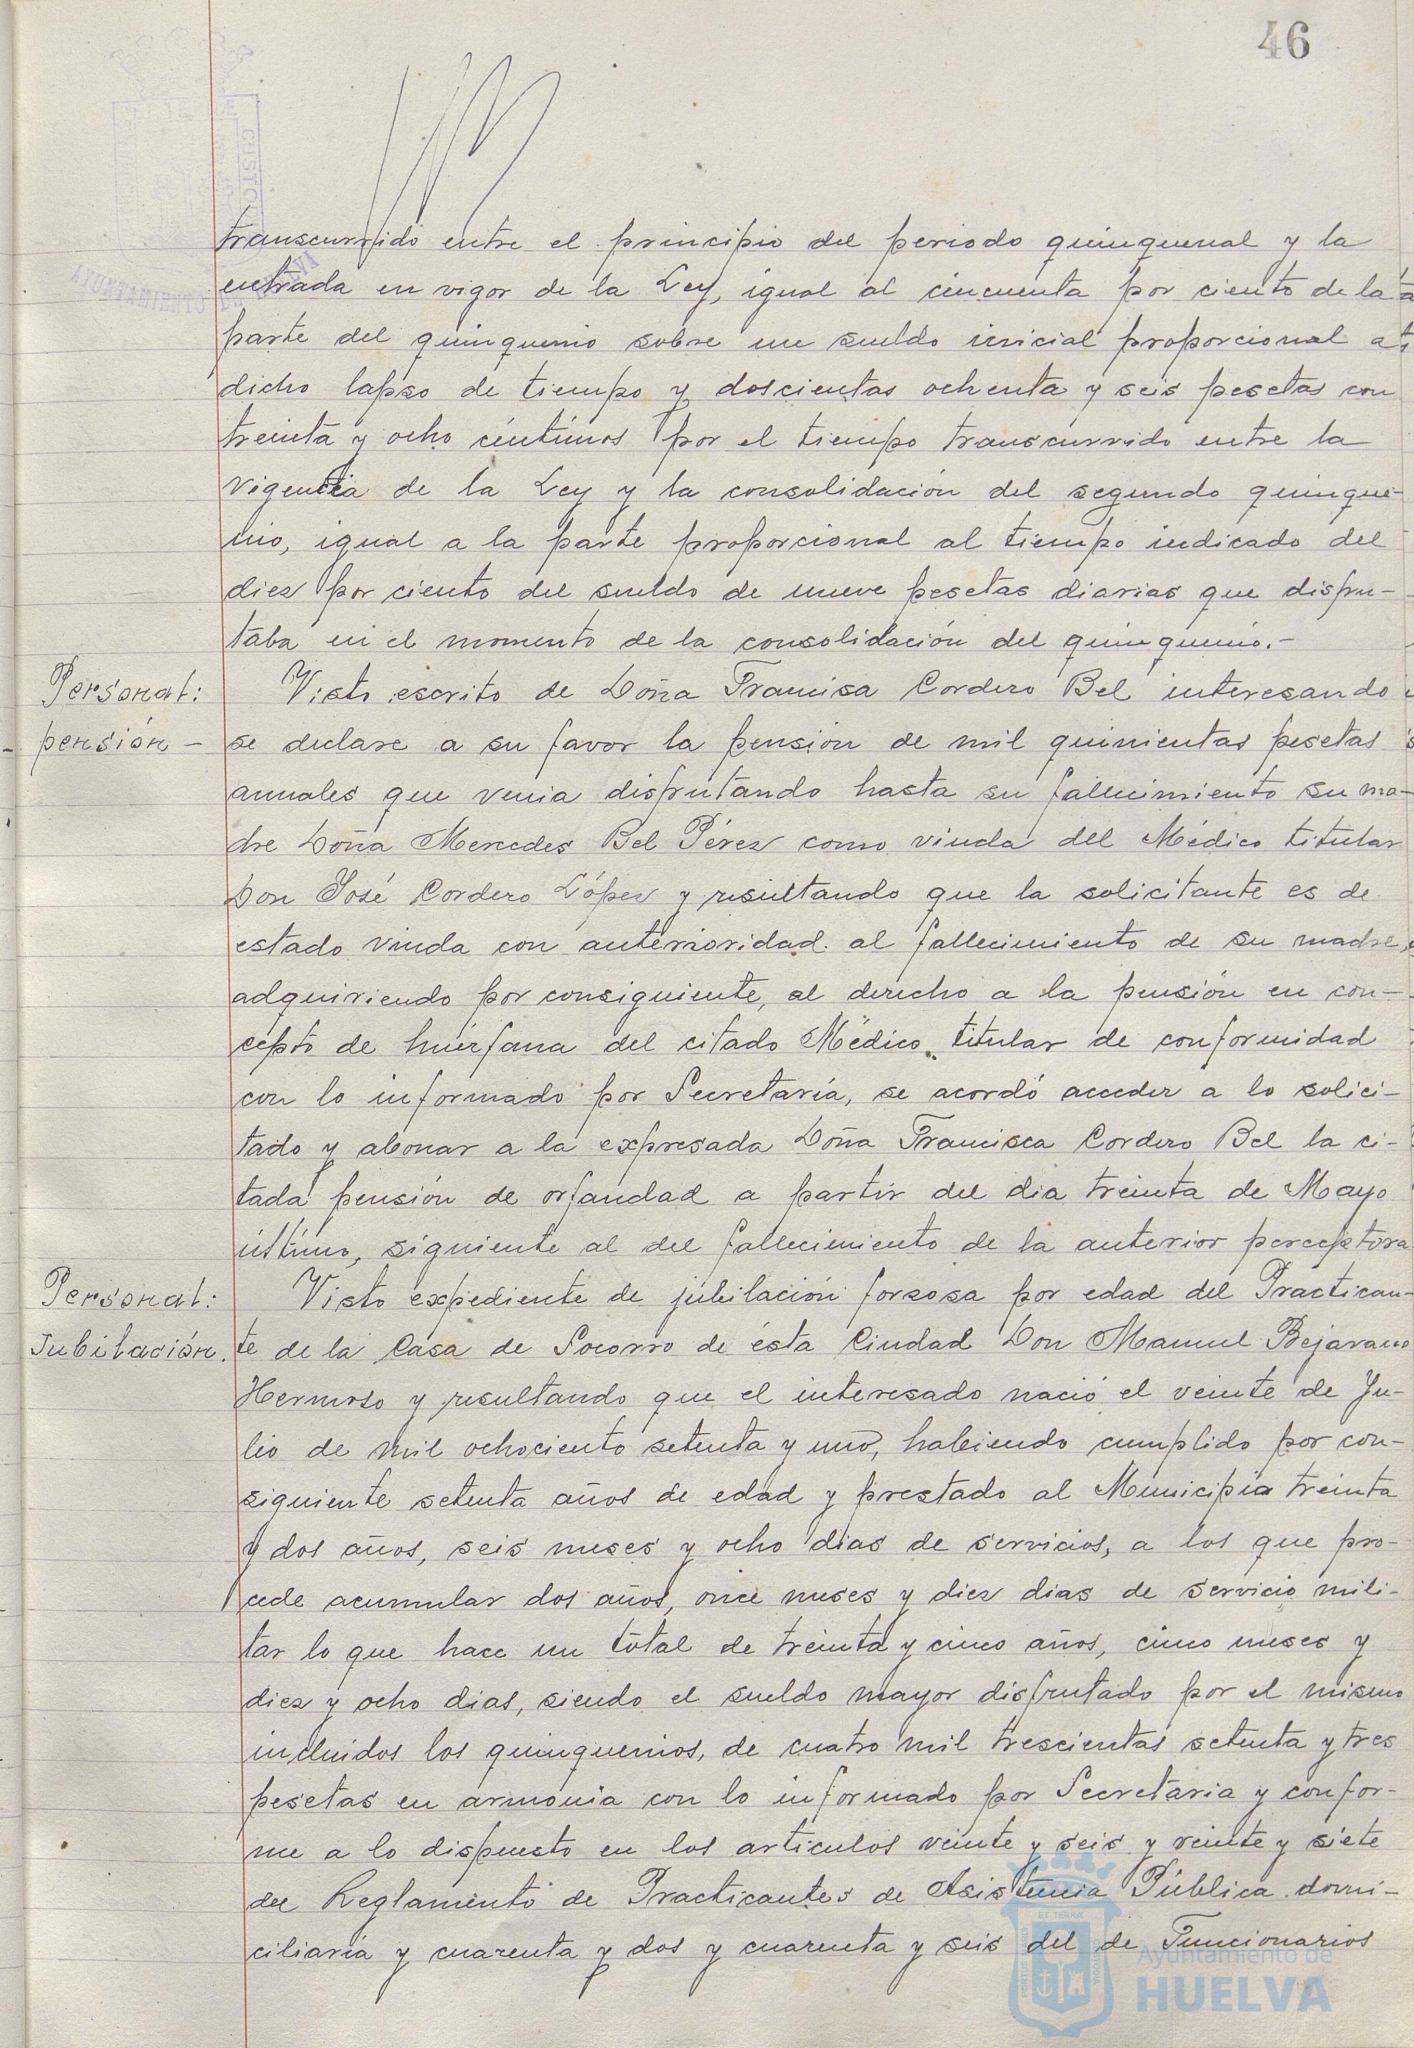 46
transcurrido entre el principio del periodo quinquenal y la
entrada en vigor de la Ley, igual al cincuenta por ciento de la
parte del quinquenio sobre un sueldo inicial proporcional a
dicho lapso de tiempo y doscientas ochenta y seis pesetas con
treinta y ocho céntimos por el tiempo transcurrido entre la
vigencia de la Ley y la consolidación del segundo quinque-
nio, igual a la parte proporcional al tiempo indicado del
diez por ciento del sueldo de nueve pesetas diarias que disfru-
taba en el momento de la consolidación del quinquenio.-
Personal:
pensión -
Visto escrito de Doña Francisa Cordero Bel interesando
se declare a su favor la pensión de mil quinientas pesetas
anuales que venia disfrutando hasta su fallecimiento su ma-
dre Doña Mercedes Bel Pérez como viuda del Médico titular
Don José Cordero López y resultando que la solicitante es de
estado viuda con anterioridad al fallecimiento de su madre,
adquiriendo por consiguiente, al derecho a la pensión en con-
cepto de huérfana del citado Médico titular de conformidad
con lo informado por Secretaría, se acordó acceder a lo solici-
tado y abonar a la expresada Doña Francisca Cordero Bel la ci-
tada pensión de orfandad a partir del dia treinta de Mayo
último, siguiente al del fallecimiento de la anterior perceptora
Personal:
Jubilación.
Visto expediente de jubilación forsosa por edad del Practican-
te de la Casa de Socorro de ésta Ciudad Don Manuel Bejarano
Hermoso y resultando que el interesado nació el veinte de Ju-
lio de mil ochociento setenta y uno, habiendo cumplido por con-
siguiente setenta años de edad y prestado al Municipio treinta
y dos años, seis meses y ocho dias de servicios, a los que pro-
cede acumular dos años, once meses y diez dias de servicio mili-
tar lo que hace un total de treinta y cinco años, cinco meses y
diez y ocho dias, siendo el sueldo mayor disfrutado por el mismo
incluidos los quinquenios, de cuatro mil trescientas setenta y tres
pesetas en armonia con lo informado por Secretaria y confor-
me a lo dispuesto en los articulos veinte y seis y veinte y siete
del Reglamento de Practicantes de Asistencia Pública domi-
ciliaria y cuarenta y dos y cuarenta y seis del de Funcionarios
Ayuntamiento de
HUELVA